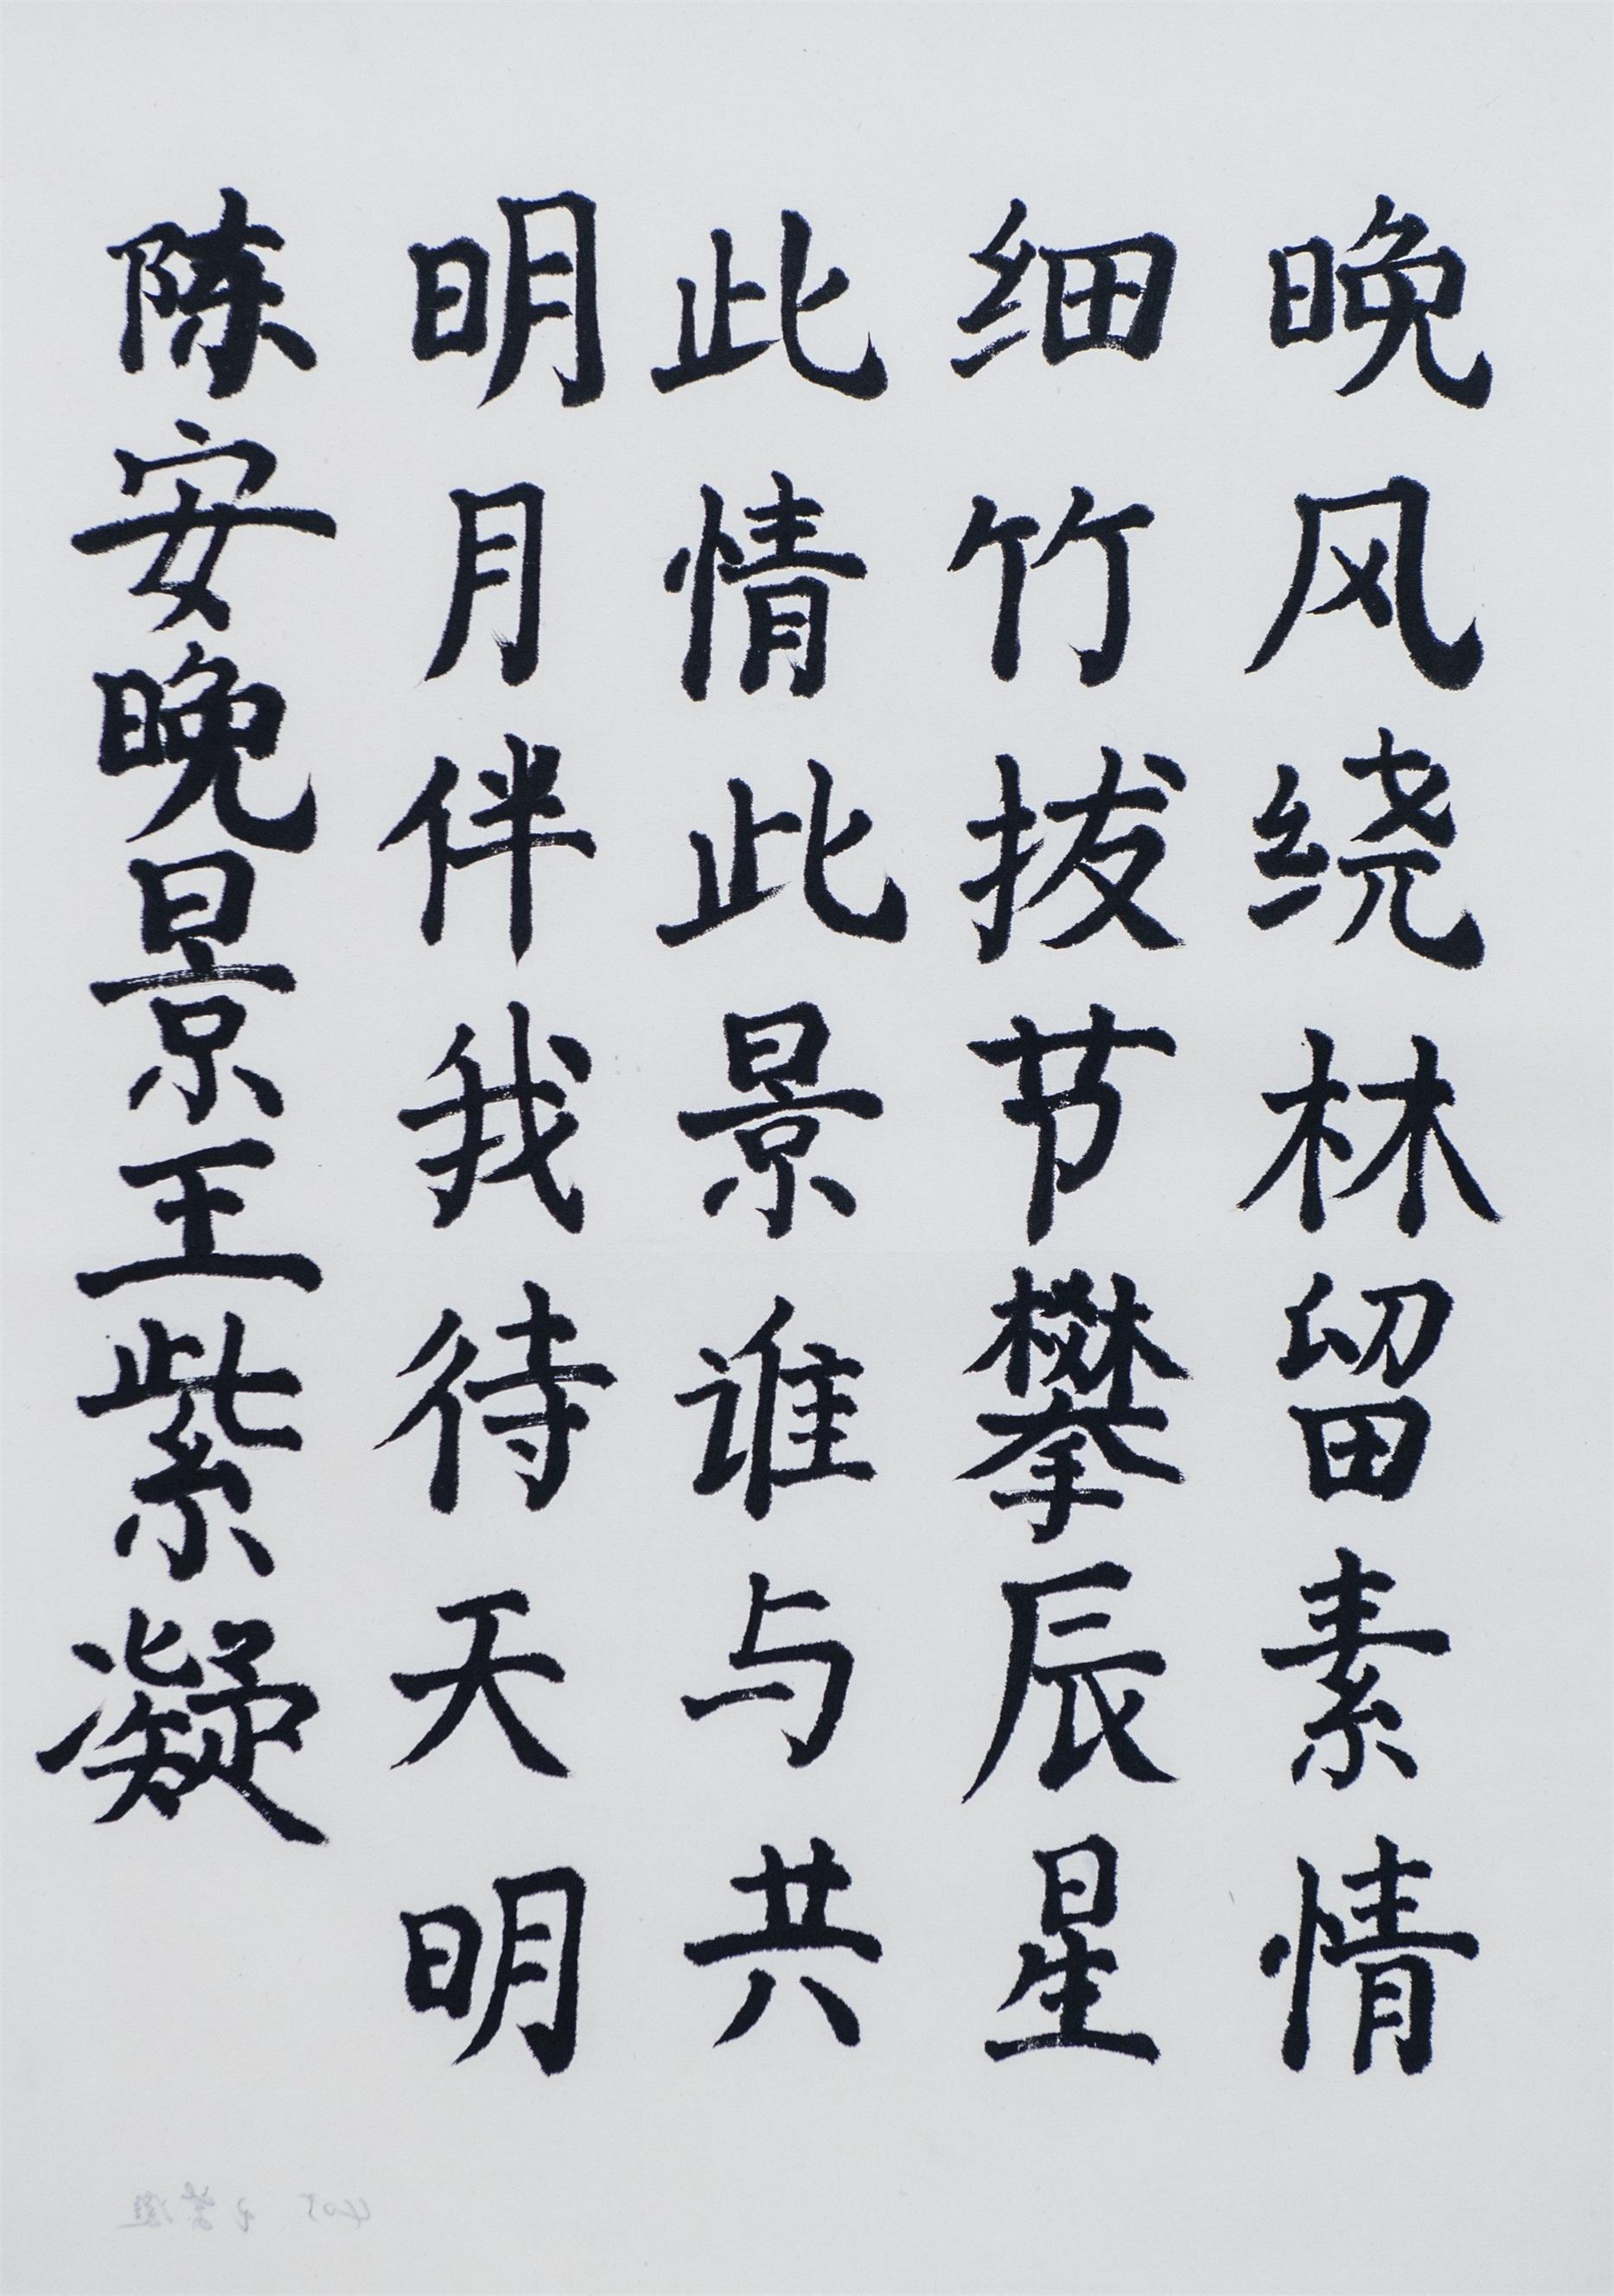 晚风绕林留素情
细竹拔节攀辰星
此情此景谁与共
明月伴我待天明
陈安晚景王紫凝